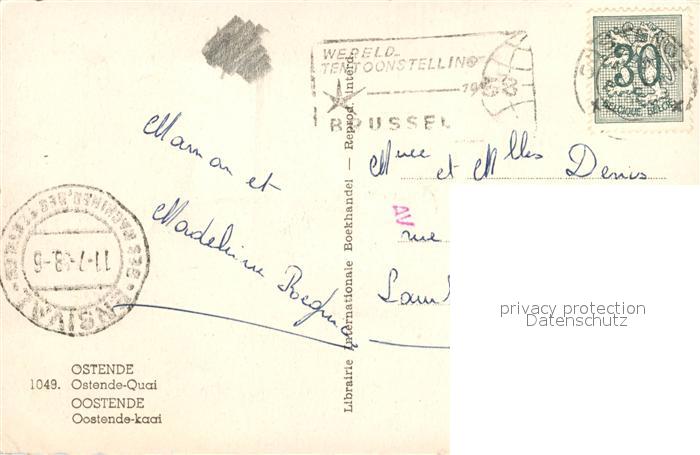 WERELD-
TENTOONSTELLING
1958
BRUSSEL
30
BELGIQUE-BELGIE
Maman et
Madeleine
Mme et Mlles Denis
AV
rue
11-7-
ENSIVAL
Librairie Internationale Boekhandel — Reprod. interd.
privacy protection
Datenschutz
OSTENDE
1049. Ostende-Quai
OOSTENDE
Oostende-kaai